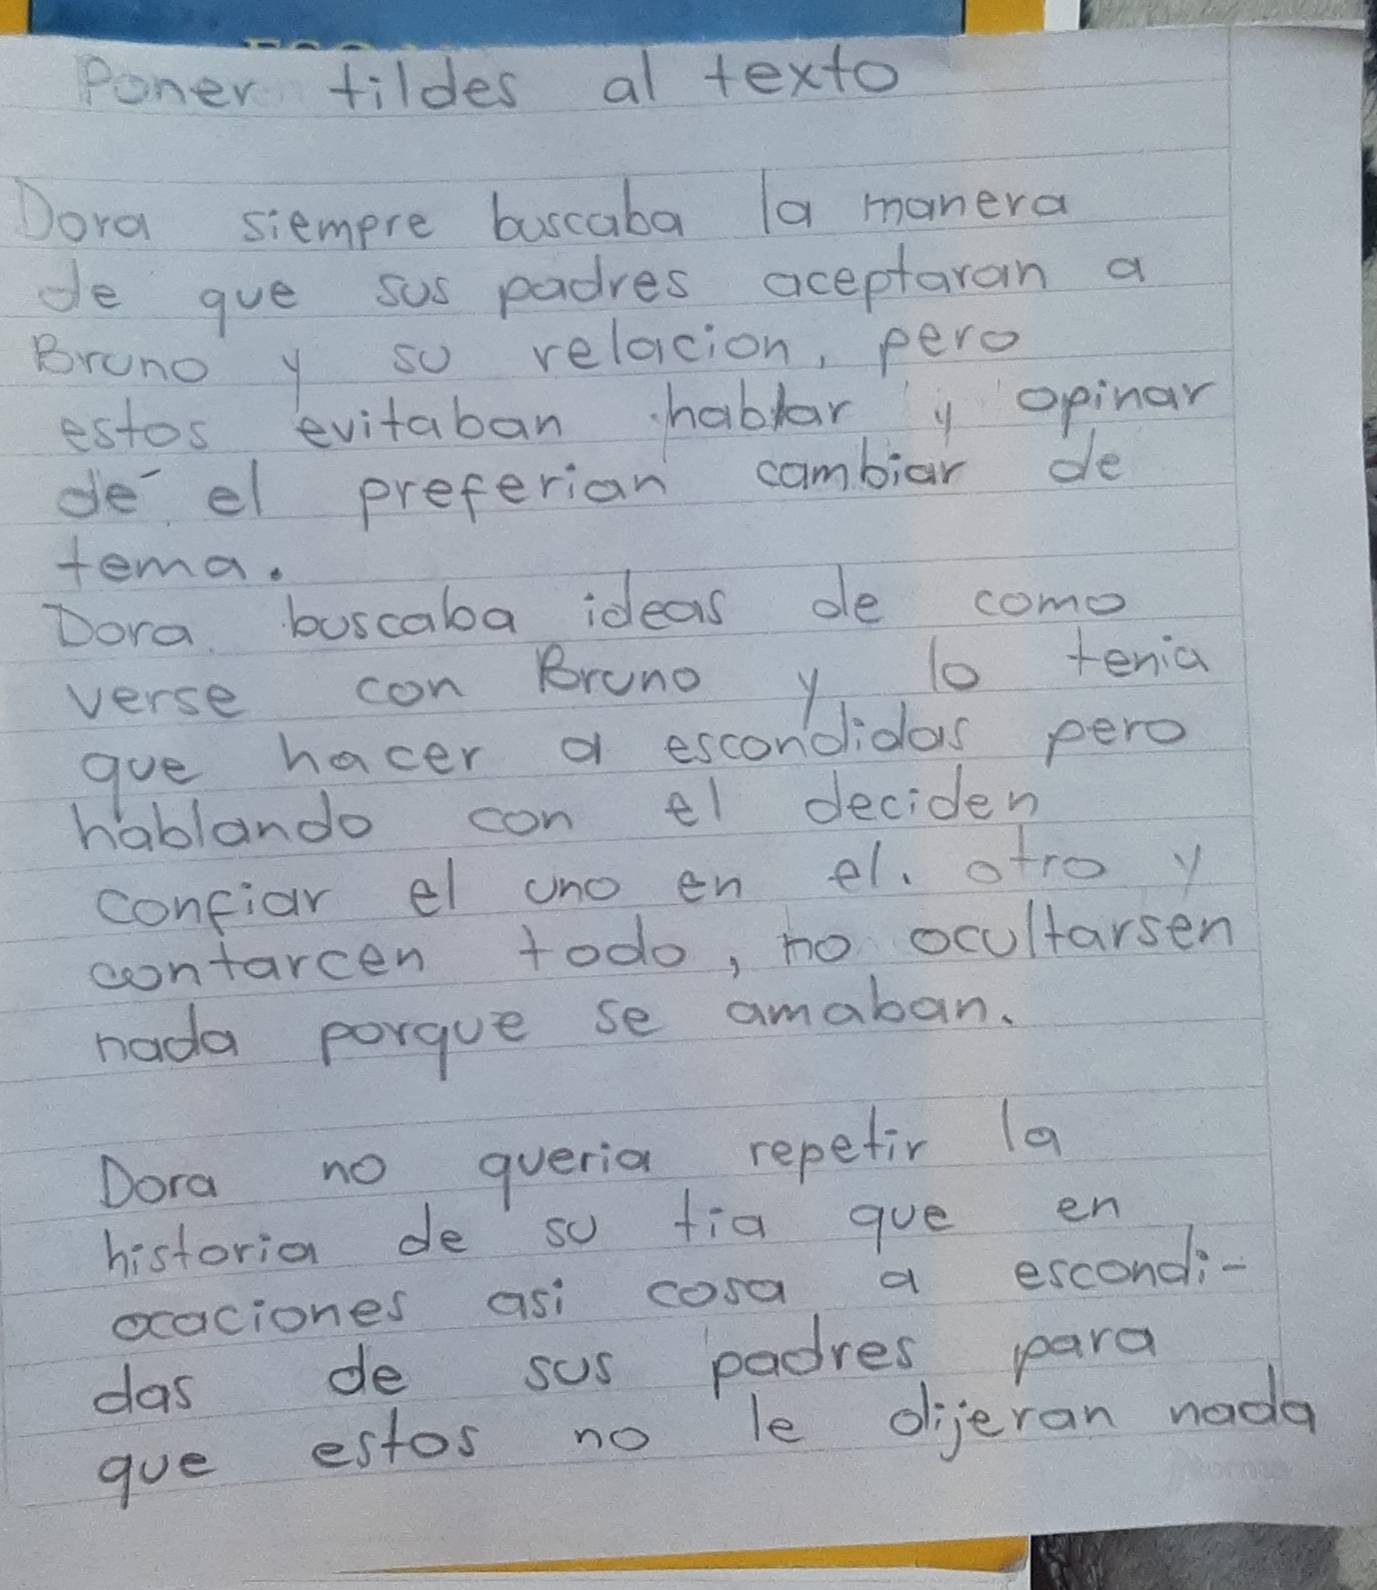 Poner tildes al texto
Dora siempre buscaba la manera
de que sus padres aceptaran a
Bruno y su relacion, pero
estos evitaban hablar y opinar
de el preferian cambiar de
tema.
Dora buscaba ideas de como
verse con Bruno y lo tenia
que hacer a escondidas pero
hablando con el deciden
confiar el uno en el. otro y
contarcen todo, no ocultarsen
nada porque se amaban.
Dora no queria repetir la
historia de su tia que en
ocaciones asi cosa a escondi-
das de sus padres para
que estos no le dijeran nada
Norma